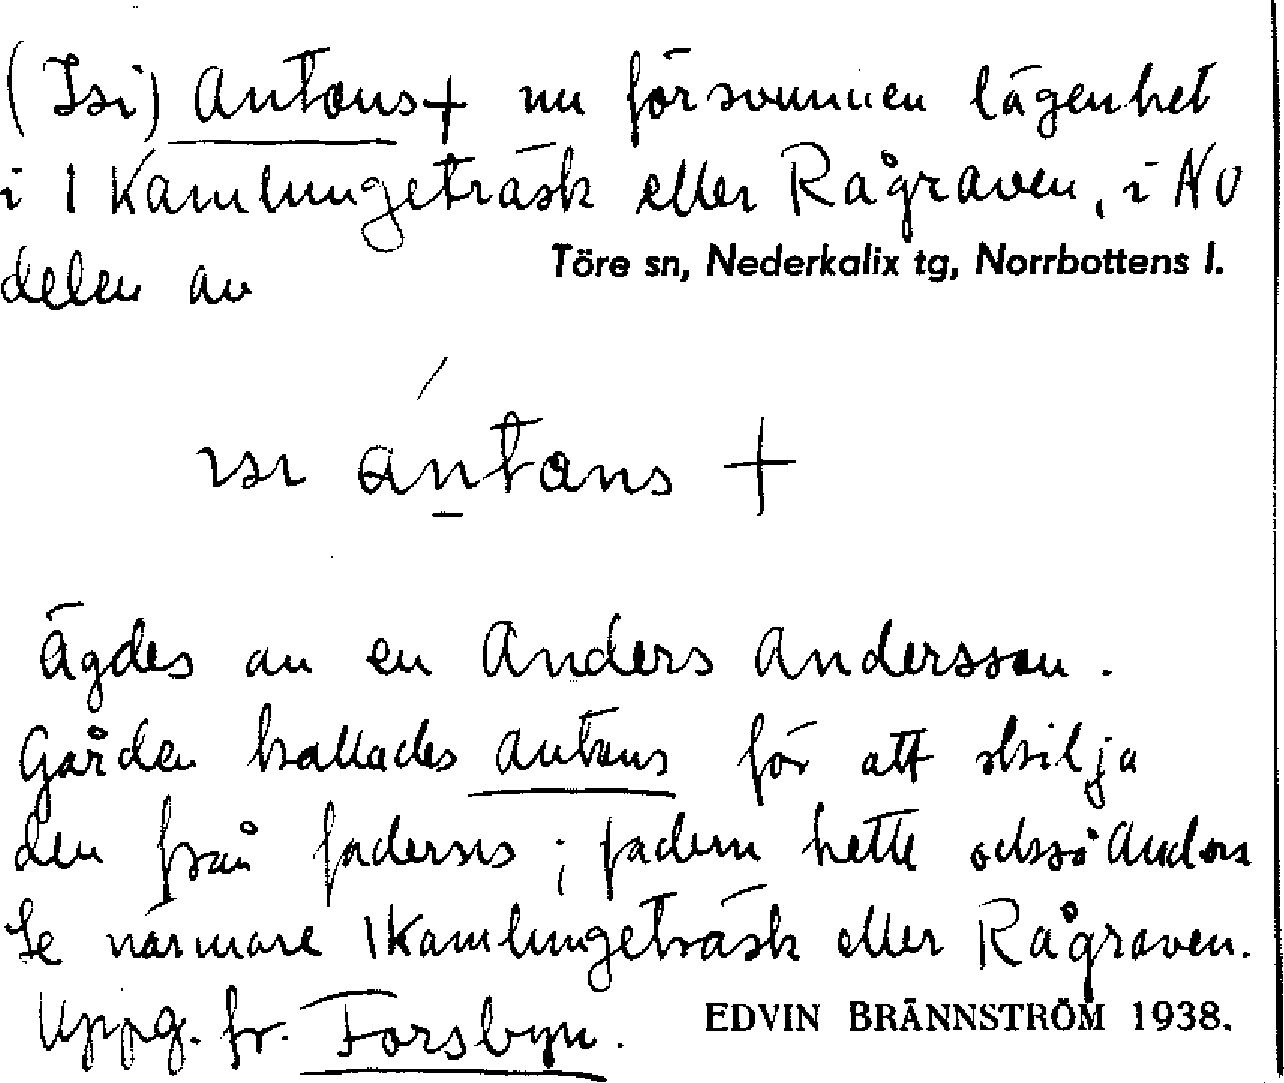 (Isi) Antons + nu försvunnen lägenhet
i 1 Kamlungeträsk eller Rågraven, i NV
delen av
Töre sn, Nederkalix tg, Norrbottens l.
ɪsɪ ántans +
Ägdes av en Anders Andersson.
Gården kallades Antons för att skilja
den från faderns; fadern hette också Anders
Se närmare 1 Kamlungeträsk eller Rågraven.
Uppg. fr. Forsbyn.
EDVIN BRÄNNSTRÖM 1938.